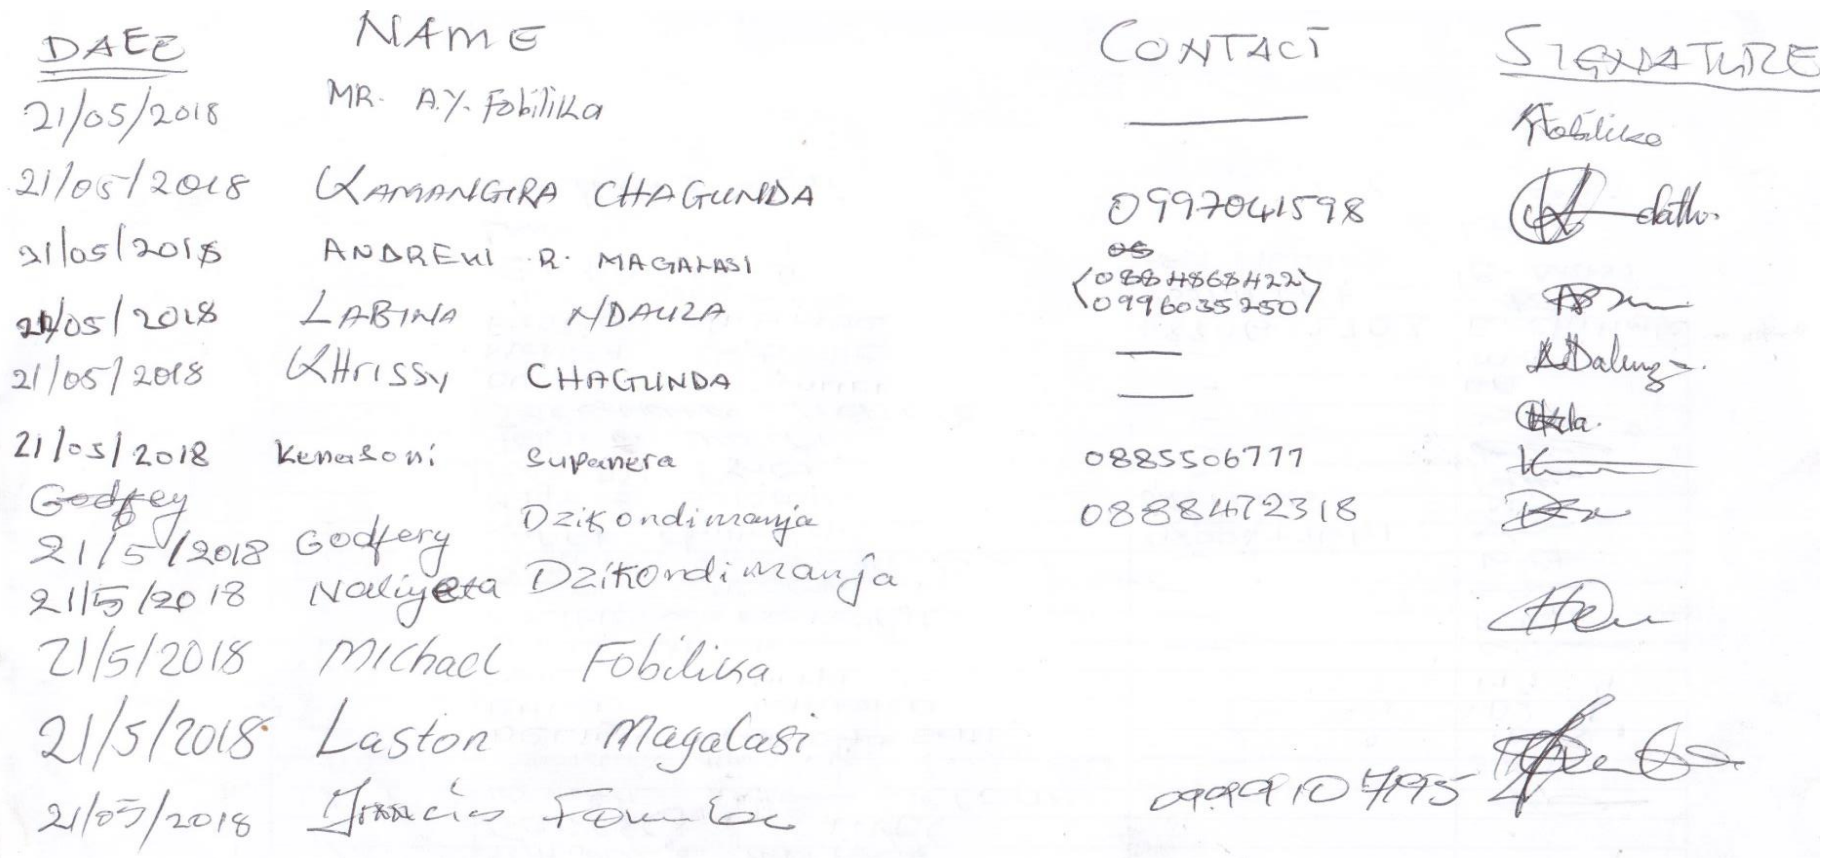 DAEE NAME CONTACT SIGNATURE
21/05/2018 MR. A.Y. Fobilika Fobilika
21/05/2018 KAMANGIRA CHAGUNDA 0997041598
21/05/2018 ANDREW R. MAGALASI 0884868422
0996035250
21/05/2018 LABINA NDAUZA
21/05/2018 KHrissy CHAGUNDA
21/05/2018 Kenasoni Supanera 0885506777
Godfey
21/5/2018 Godfery Dzikondimanja 0888472318
21/5/2018 Naliyeta Dzikondimanja
21/5/2018 Michael Fobilika
21/5/2018 Laston Magalasi
21/05/2018 Francis 0999107195